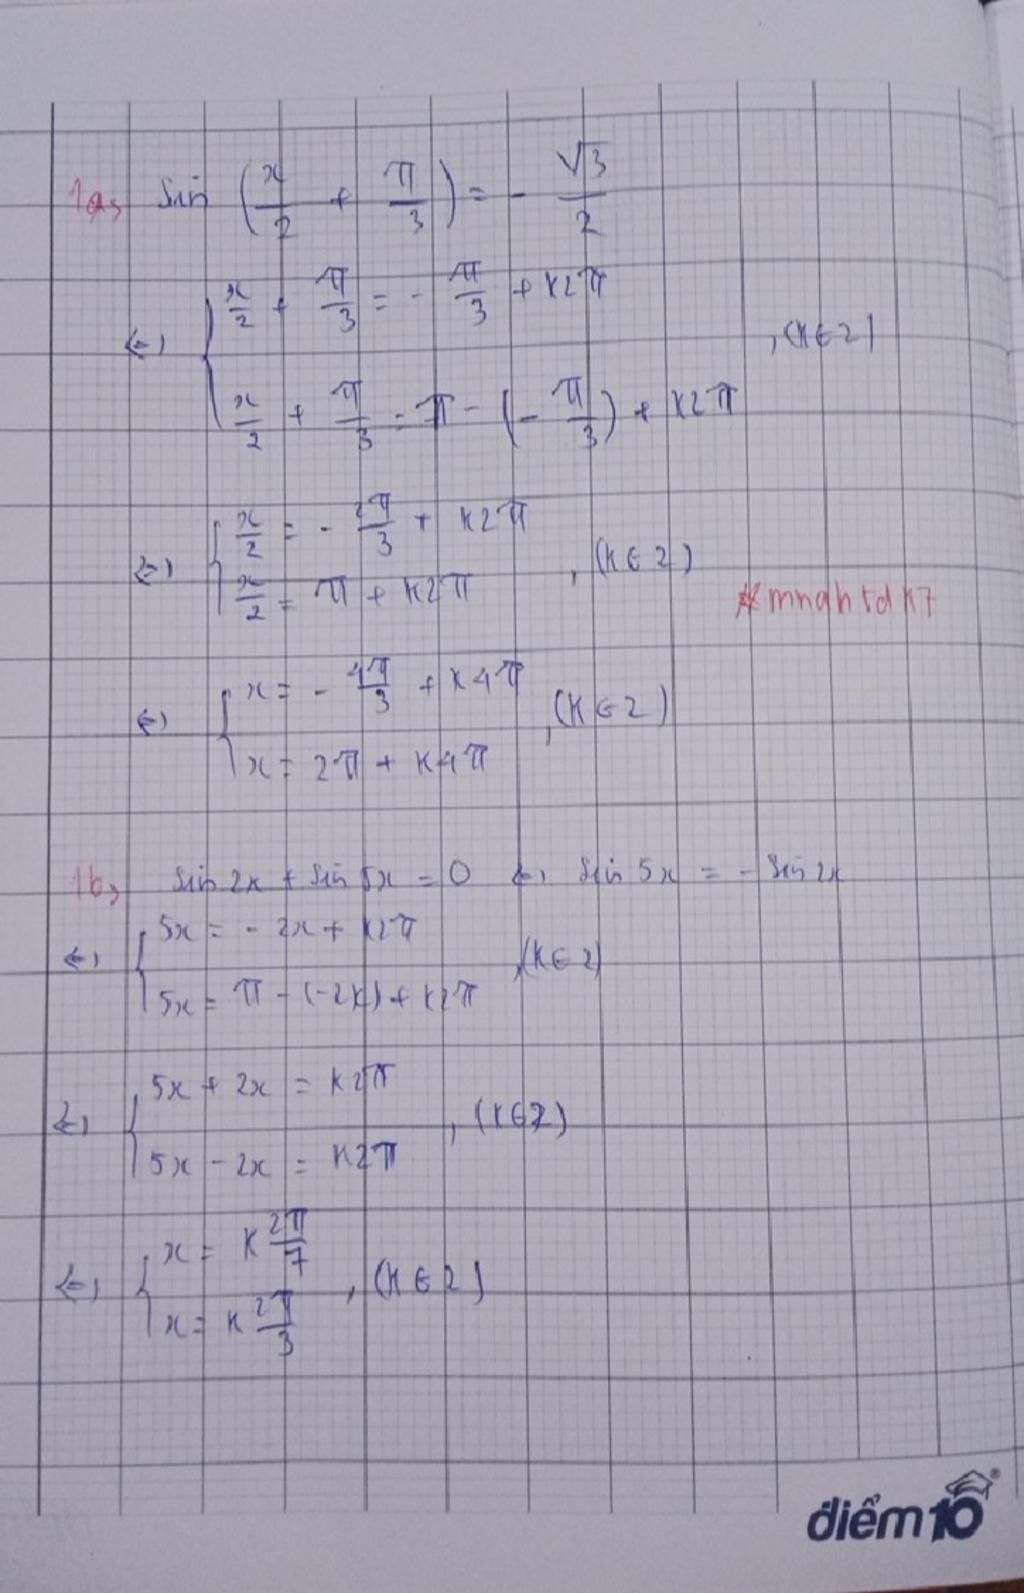 1a, sin (x/2 + π/3) = - √3/2
<=> { x/2 + π/3 = - π/3 + K2π
x/2 + π/3 = π - (- π/3) + K2π , (K ∈ Z)
<=> { x/2 = - 2π/3 + K2π
x/2 = π + K2π , (K ∈ Z)
* mnqhtdk7
<=> { x = - 4π/3 + K4π
x = 2π + K4π , (K ∈ Z)
1b, sin 2x + sin 5x = 0 <=> sin 5x = - sin 2x
<=> { 5x = - 2x + K2π
5x = π - (-2x) + K2π , (K ∈ Z)
<=> { 5x + 2x = K2π
5x - 2x = K2π , (K ∈ Z)
<=> { x = K 2π/7
x = K 2π/3 , (K ∈ Z)
điểm10